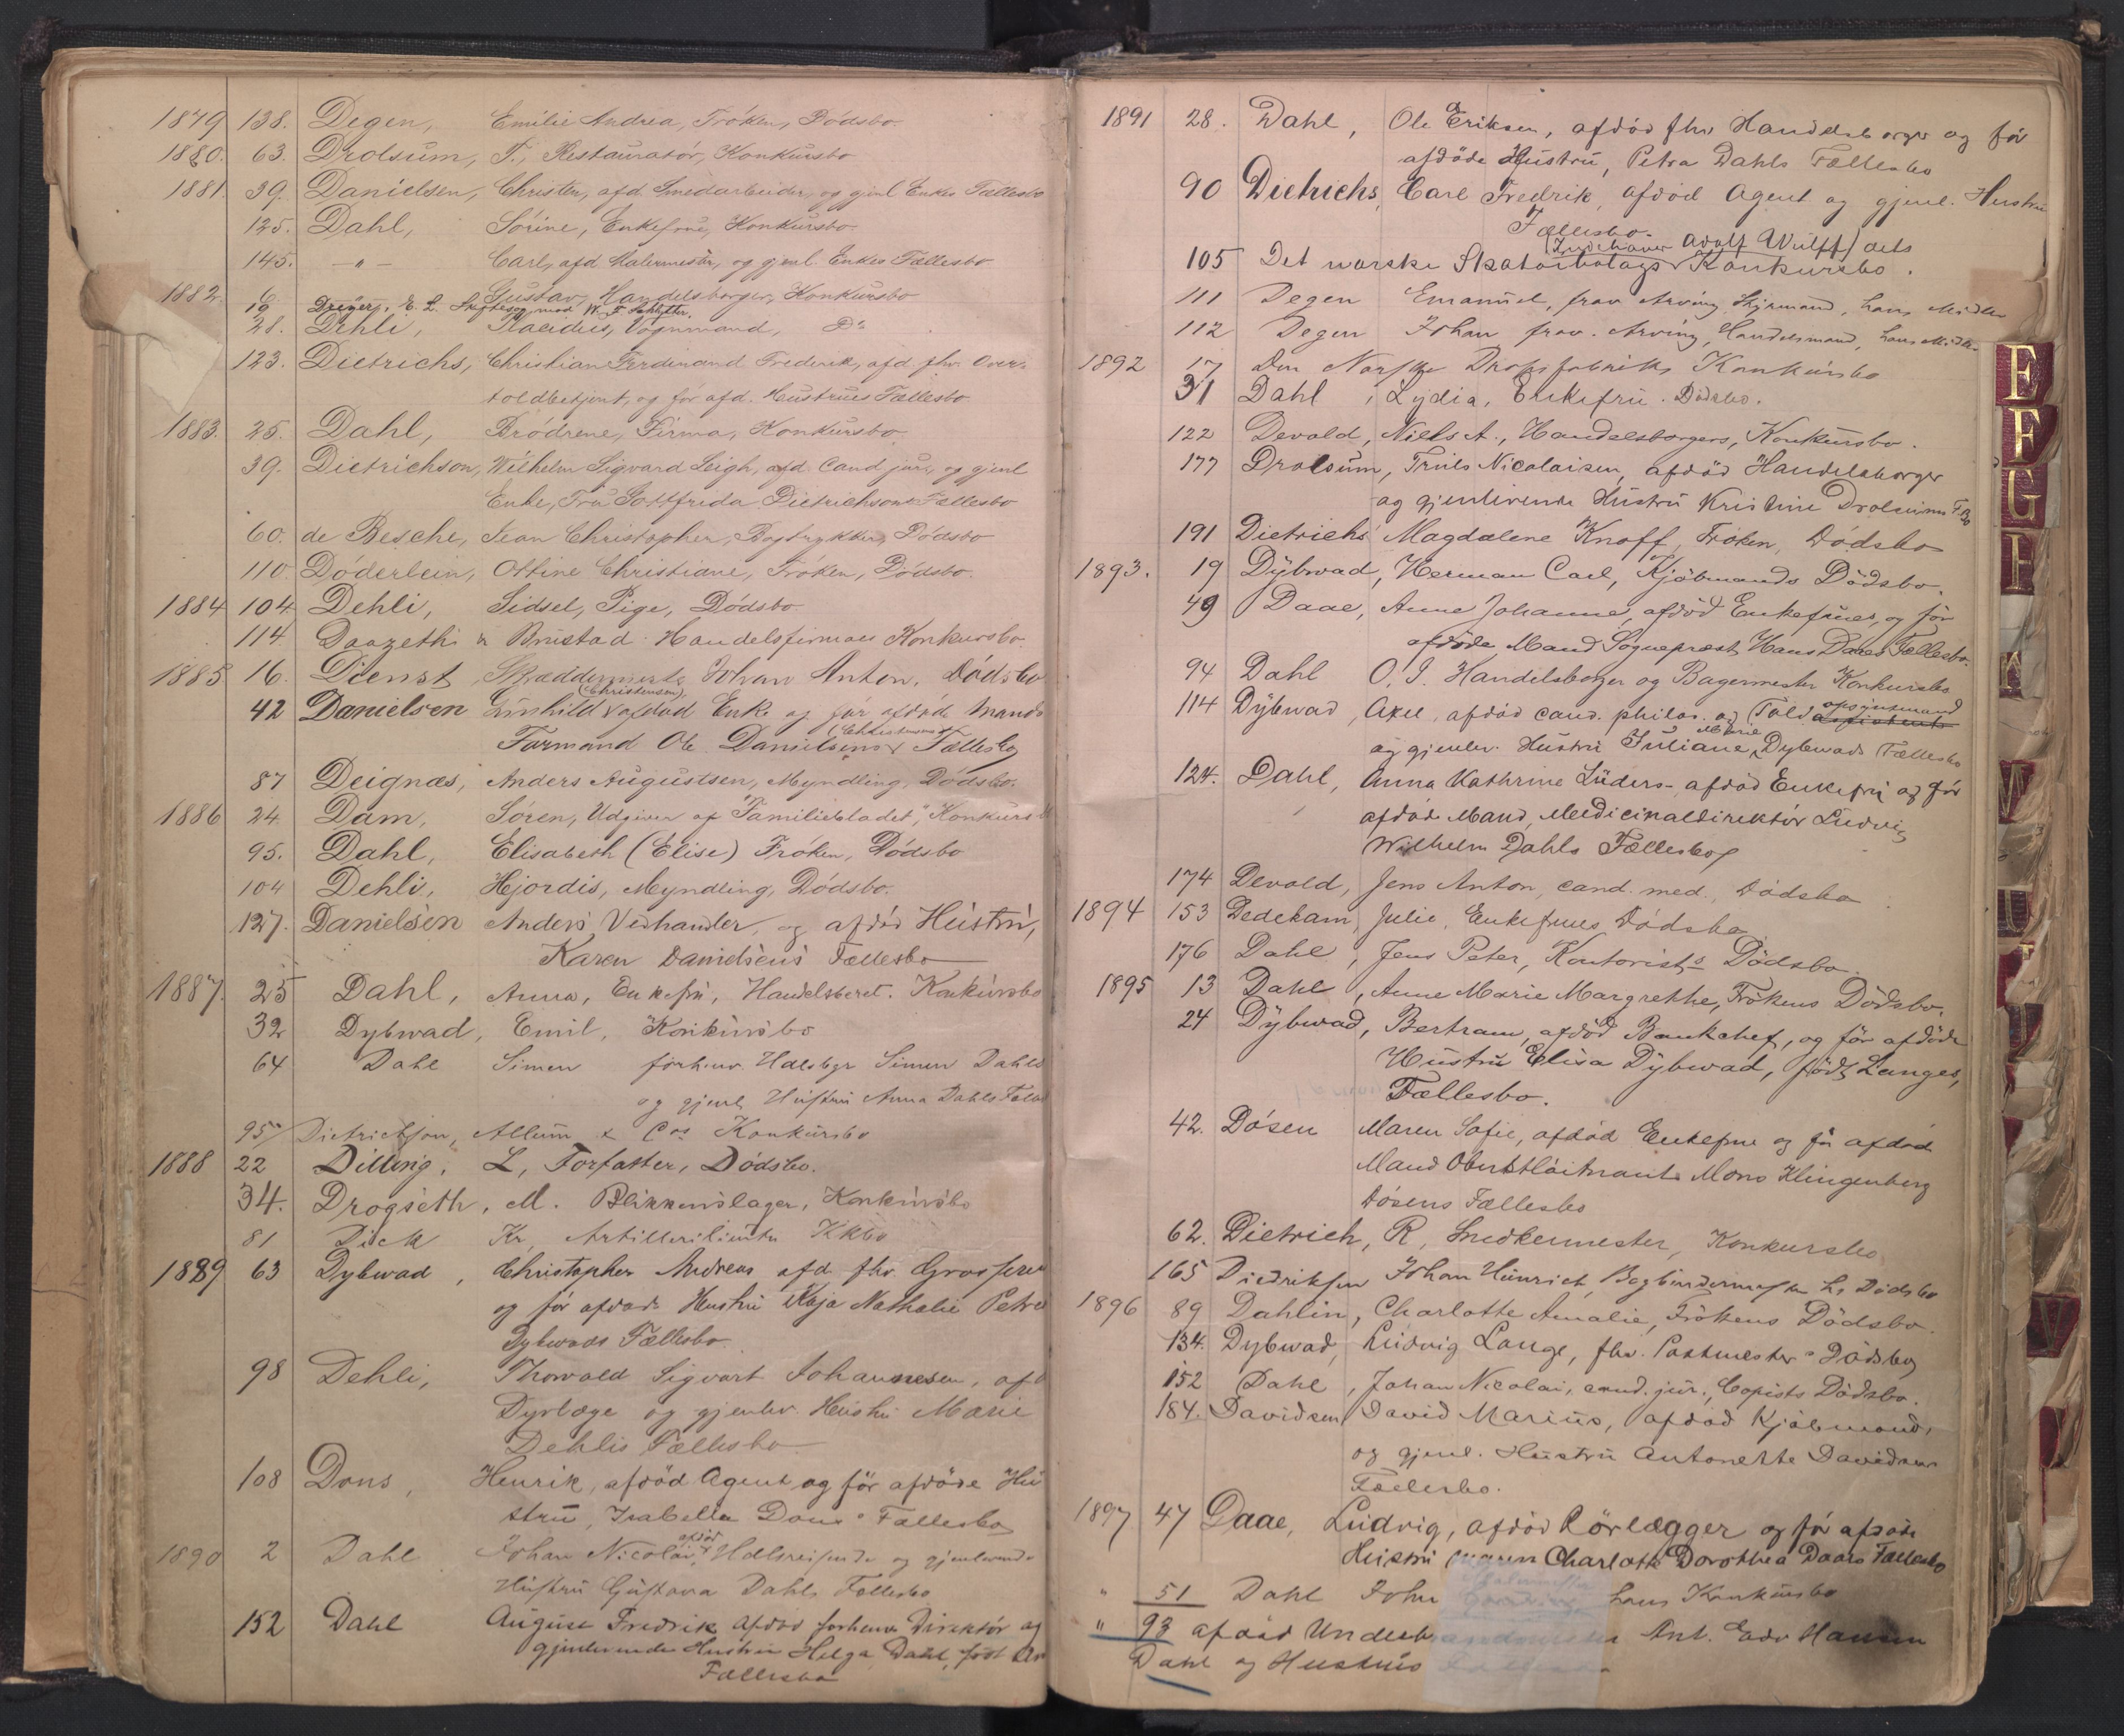 1879 138. Degen, Emilie Andrea, Fröken, Dödsbo
1880. 63. Drolsum, T., Restauratör, Konkursbo
1881. 39. Danielsen, Christen, afd. Smedarbeider, og gjenl. Enkes Fællesbo
125. Dahl, Sörine, Enkefrue, Konkursbo
145. —"— Carl, afd Malermester, og gjenl. Enkes Fællesbo
1882. 6. Gustav, Handelsborger, Konkursbo
19 Dreyer, E. L. Skiftesag mod W. F. Schlytter.
28. Dehli, Placidus, Vognmand, Do
123. Dietrichs, Christian Ferdinand Frederik, afd. fhv. Over-
toldbetjent, og för afd. Hustrues Fællesbo
1883. 25. Dahl, Brödrene, Firma, Konkursbo
39. Dietrichson, Wilhelm Sigvard Leigh, afd. Cand jur, og gjenl
Enke, Fru Gottfrida Dietrichsons Fællesbo
60. de Besche, Jean Christopher, Bogtrykker, Dödsbo
110. Döderlein, Ottine Christiane, Fröken, Dödsbo.
1884 104 Dehli, Sidsel, Pige, Dödsbo
114. & Brustad Handelsfirmaes Konkursbo
1885 16. Dienst, Skæddermester Johan Anton. Dödsbo
(Christensen)
42 Danielsen Gunhild afdöd Enke og før afdöde Mands
(Christensens)
Formand Ole Danielsens Fællesbo
87 Deignæs, Anders Augustsen, Myndling, Dödsbo.
1886 24. Dam, Sören, Udgiver af "Familiebladet", Konkurs
95. Dahl, Elisabeth (Elise) Fröken, Dödsbo
104 Dehli, Hjordis, Myndling, Dödsbo.
127. Danielsen Anders Vedhandler, og afdöd Hustru,
Karen Danielsens Fællesbo
1887. 25 Dahl, Anna, Enkefru, Handelsberet. Konkursbo
32 Dybwad, Emil, Konkursbo
64 Dahl Simen forhenv. Hdlsbgr Simen Dahls
og gjenl. Hustru Anna Dahls
95 Dietrichson, Allum & Cos Konkursbo
1888 22 Dilling, L, Forfatter, Dödsbo.
34. Drogseth, M. Blikkenslager, Konkursbo
81 Dick Kr, Kkbo
1889 63 Dybwad, Christopher Andreas afd. fhv.
og för afdöde Hustru Kaja Nathalie Petrea
Dybwads Fællesbo.
98 Dehli, Thorvald Sigvart Johannesen, afd
Dyrlæge og gjenlev. Hustru Marie
Dehlis Fællesbo
108 Dons, Henrik, afdöd Agent og för afdöde Hu
stru, Isabella Dons' Fællesbo
1890 2 Dahl Johan Nicolai, afdöd Hdlsreisende og gjenlevende
Hustru Gustava Dahls Fællesbo
152 Dahl August Fredrik afdöd forhenv Direktör og
gjenlevende Hustru Helga Dahl, født
Fællesbo
1891 28. Dahl, Ole Eriksen, afdöd fhv Handelsborger og för
afdöde Hustru, Petra Dahls Fællesbo
90 Dietrichs, Carl Fredrik, afdöd Agent og gjenl. Hustru
Fællesbo.
(Indehaver Adolf Wulff) dets
105 Det norske Konkursbo.
111 Degen Emanuel, frav Arving Styrmand, hans Midler
112 Degen Johan frav. Arving, Handelsmand, hans Midler
1892 17 Den Norske Dropsfabriks Konkursbo
31 Dahl, Lydia, Enkefru. Dödsbo.
122 Devold, Niels A., Handelsborgers, Konkursbo.
177 Drolsum, Truls Nicolaisen, afdöd Handelsborger
og gjenlevende Hustru Kristine Drolsums F. Bo
191 Dietrichs Magdalene Knoff, Fröken, Dödsbo
1893. 19 Dybwad, Herman Carl, Kjöbmands Dödsbo.
49 Daae, Anne Johanne, afdöd Enkefrues, og för
afdöde Mand Sogneprest Hans Daaes Fællesbo.
94 Dahl O. J. Handelsborger og Bagermester Konkursbo
114 Dybwad, Axel, afdöd cand. philos. og Told opsynsmand
og gjenlev. Hustru Juliane Marie Dybwads Fællesbo
124. Dahl, Anna Kathrine Lüders, afdöd Enkefru og för
afdöde Mand, Medicinaldirektör Ludvig
Wilhelm Dahls Fællesbo
174 Devold, Jens Anton, cand. med., Dödsbo
1894 153 Dedekam, Julie, Enkefrues Dödsbo
176 Dahl, Jens Peter, Kontorists Dödsbo.
1895 13 Dahl, Anne Marie Margrethe, Frökens Dödsbo.
24 Dybwad, Bertram, afdöd Bankchef, og för afdöde
Hustru Elisa Dybwad, födt Langes,
Fællesbo.
42. Dösen Maren Sofie, afdöd Enkefrue og för afdöd
Mand Oberstlöitnant Mons Klingenberg
Dösens Fællesbo
62. Dietrich, R, Snedkermester, Konkursbo
165 Diedriksen Johan Hinrich, Bogbindermester hs Dödsbo
1896 89 Dahlin, Charlotte Amalie, Frökens Dödsbo.
134. Dybwad, Ludvig Lange, fhv. Postmesters Dödsbo
152 Dahl, Johan Nicolai, cand. jur., Copists Dödsbo.
184. Davidsen, David Marius, afdöd Kjöbmand,
og gjenl. Hustru Antonette Davidsens
Fællesbo.
1897 47 Daae, Ludvig, afdöd Rörlægger og för afdöde
Hustru Maren Charlotte Dorothea Daaes Fællesbo
" 51 Dahl John hans Konkursbo
" 93 afdöd Ant. Edv Hansen
Dahl og Hustrus
E
F
G
I
K
V